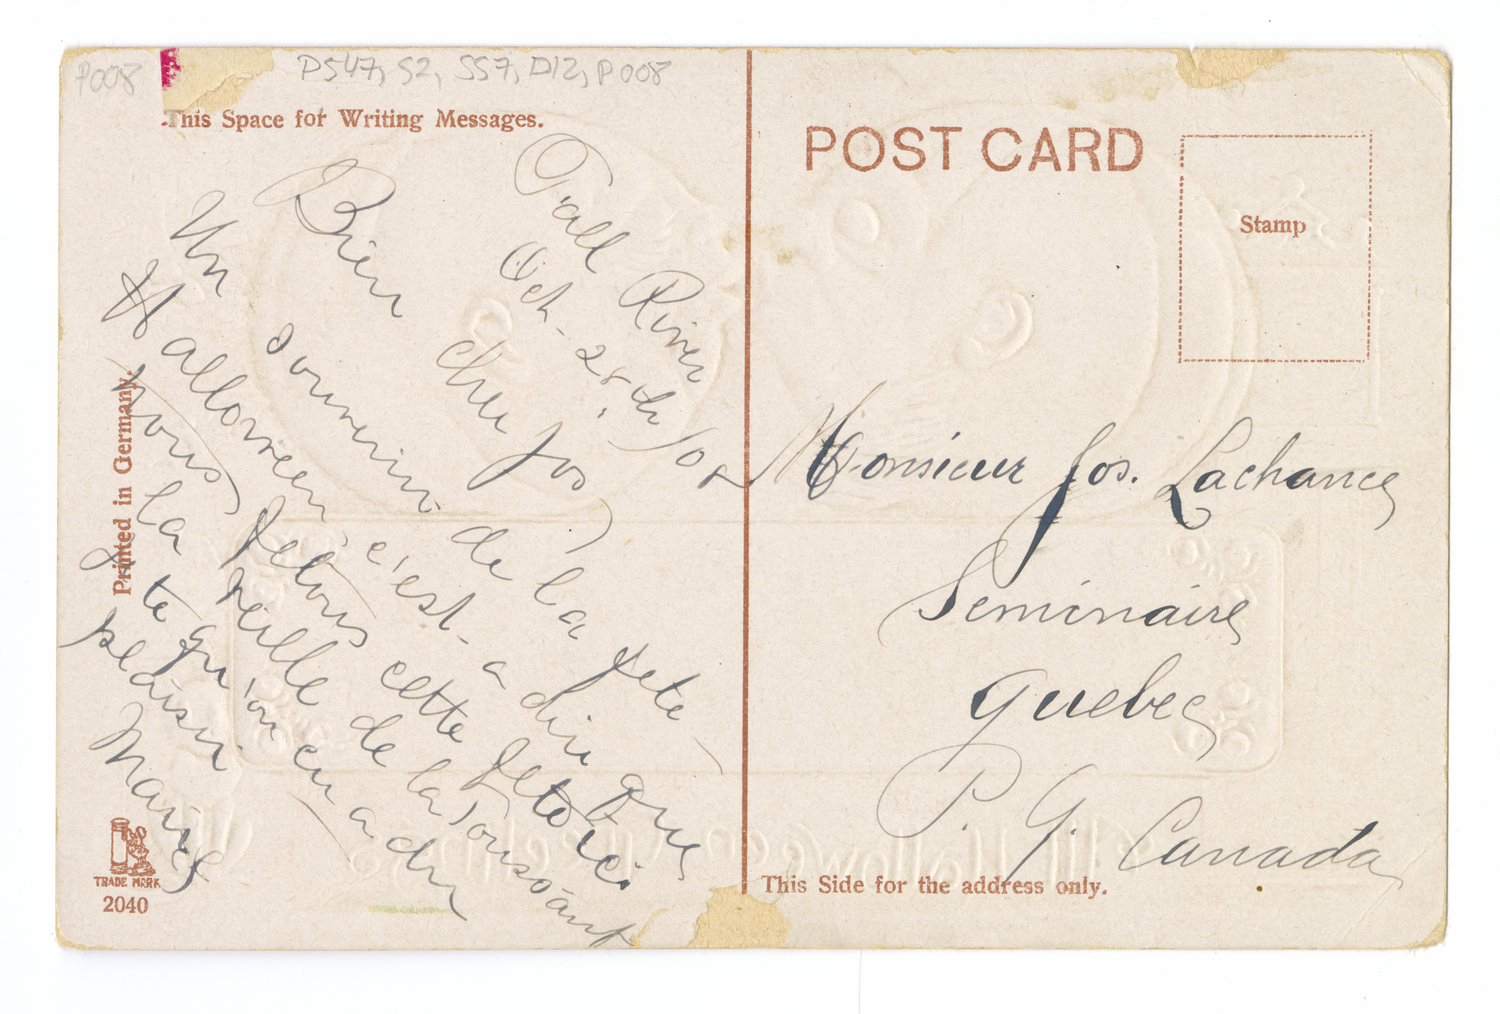 P008
P547, S2, SS7, D12, P008
This Space for Writing Messages.
Fall River
Oct - 28th, /08
Bien cher Jos
Un souvenir de la fete
Halloween c'est-a dire que
nous fetons cette fete ici
la veille de la Toussaint
te qu'on en a du
plaisir.
Marie
Printed in Germany.
TRADE MARK
2040
POST CARD
Stamp
Monsieur Jos. Lachance
Seminaire
Quebec
P. Q. Canada
This Side for the address only.